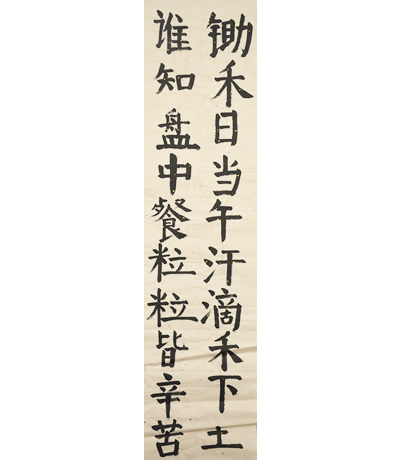 锄禾日当午汗滴禾下土
谁知盘中餐粒粒皆辛苦